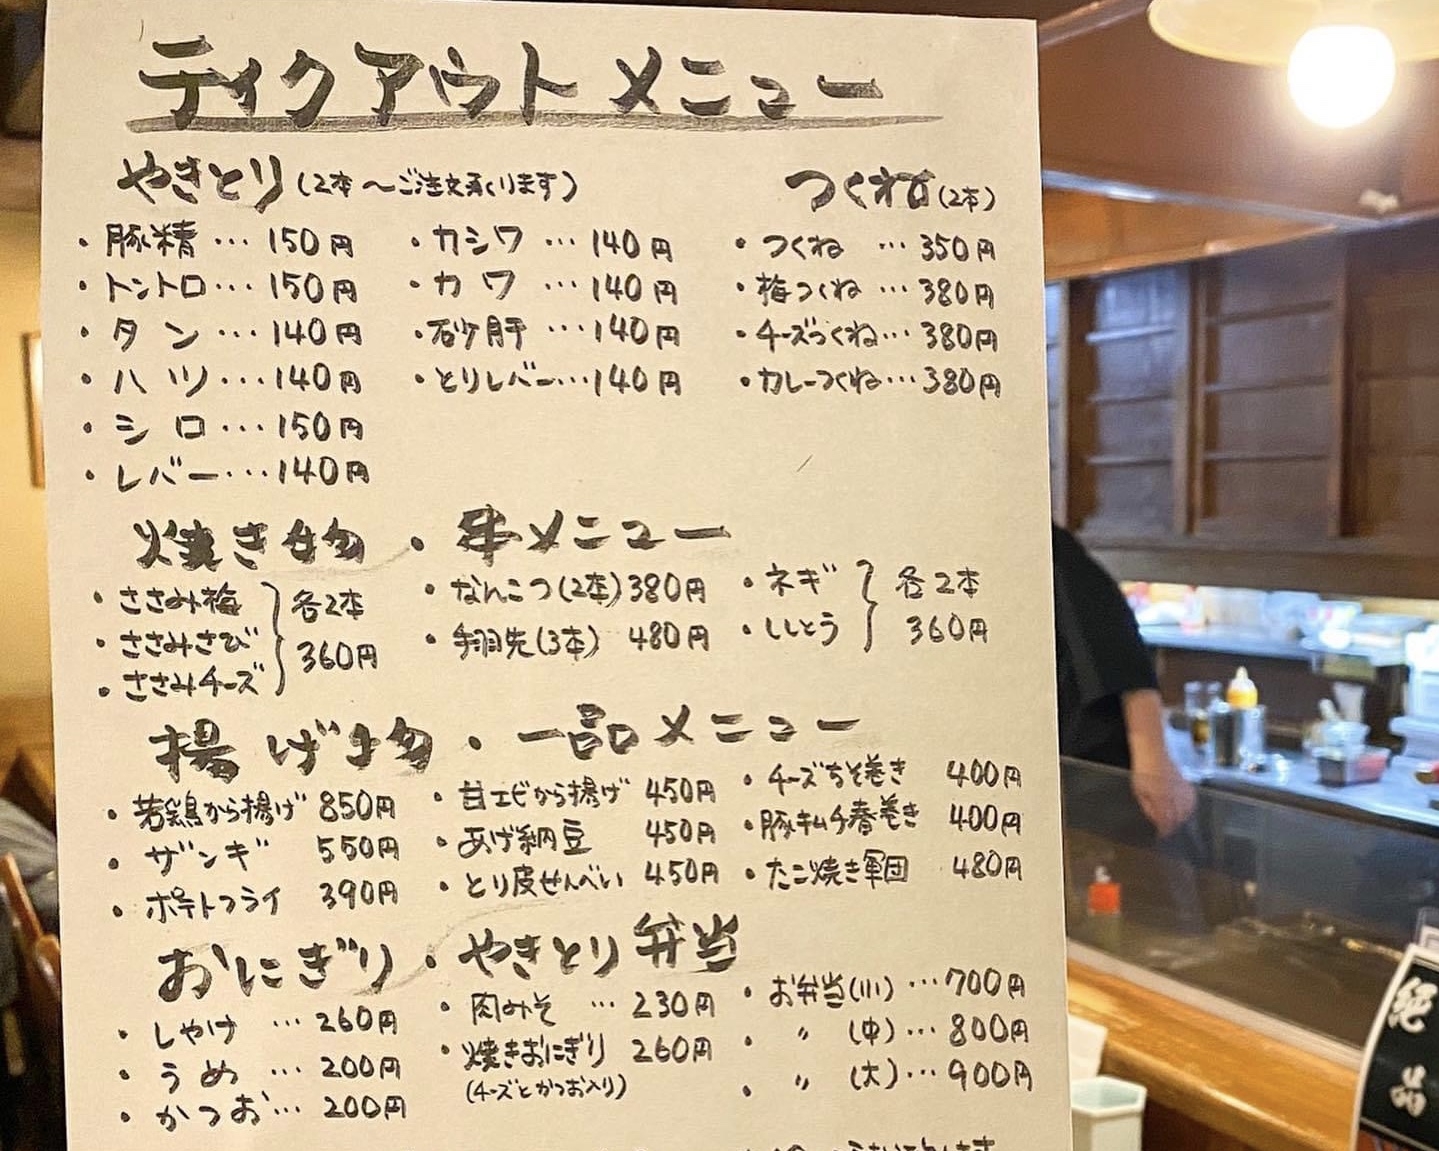 テイクアウトメニュー
やきとり(2本〜ご注文承ります)
・豚精…150円
・トントロ…150円
・タン…140円
・ハツ…140円
・シロ…150円
・レバー…140円
・カシワ…140円
・カワ…140円
・砂肝…140円
・とりレバー…140円
つくね(2本)
・つくね…350円
・梅つくね…380円
・チーズつくね…380円
・カレーつくね…380円
焼き物・串メニュー
・ささみ梅
・ささみさび
・ささみチーズ
各2本
360円
・なんこつ(2本)380円
・手羽先(3本) 480円
・ネギ
・ししとう
各2本
360円
揚げ物・一品メニュー
・若鶏から揚げ 850円
・ザンギ 550円
・ポテトフライ 390円
・甘エビから揚げ 450円
・あげ納豆 450円
・とり皮せんべい 450円
・チーズちそ巻き 400円
・豚キムチ春巻き 400円
・たこ焼き軍団 480円
おにぎり・やきとり弁当
・しゃけ…260円
・うめ…200円
・かつお…200円
・肉みそ…230円
・焼きおにぎり 260円
(チーズとかつお入り)
・お弁当(小)…700円
・〃(中)…800円
・〃(大)…900円
絶品